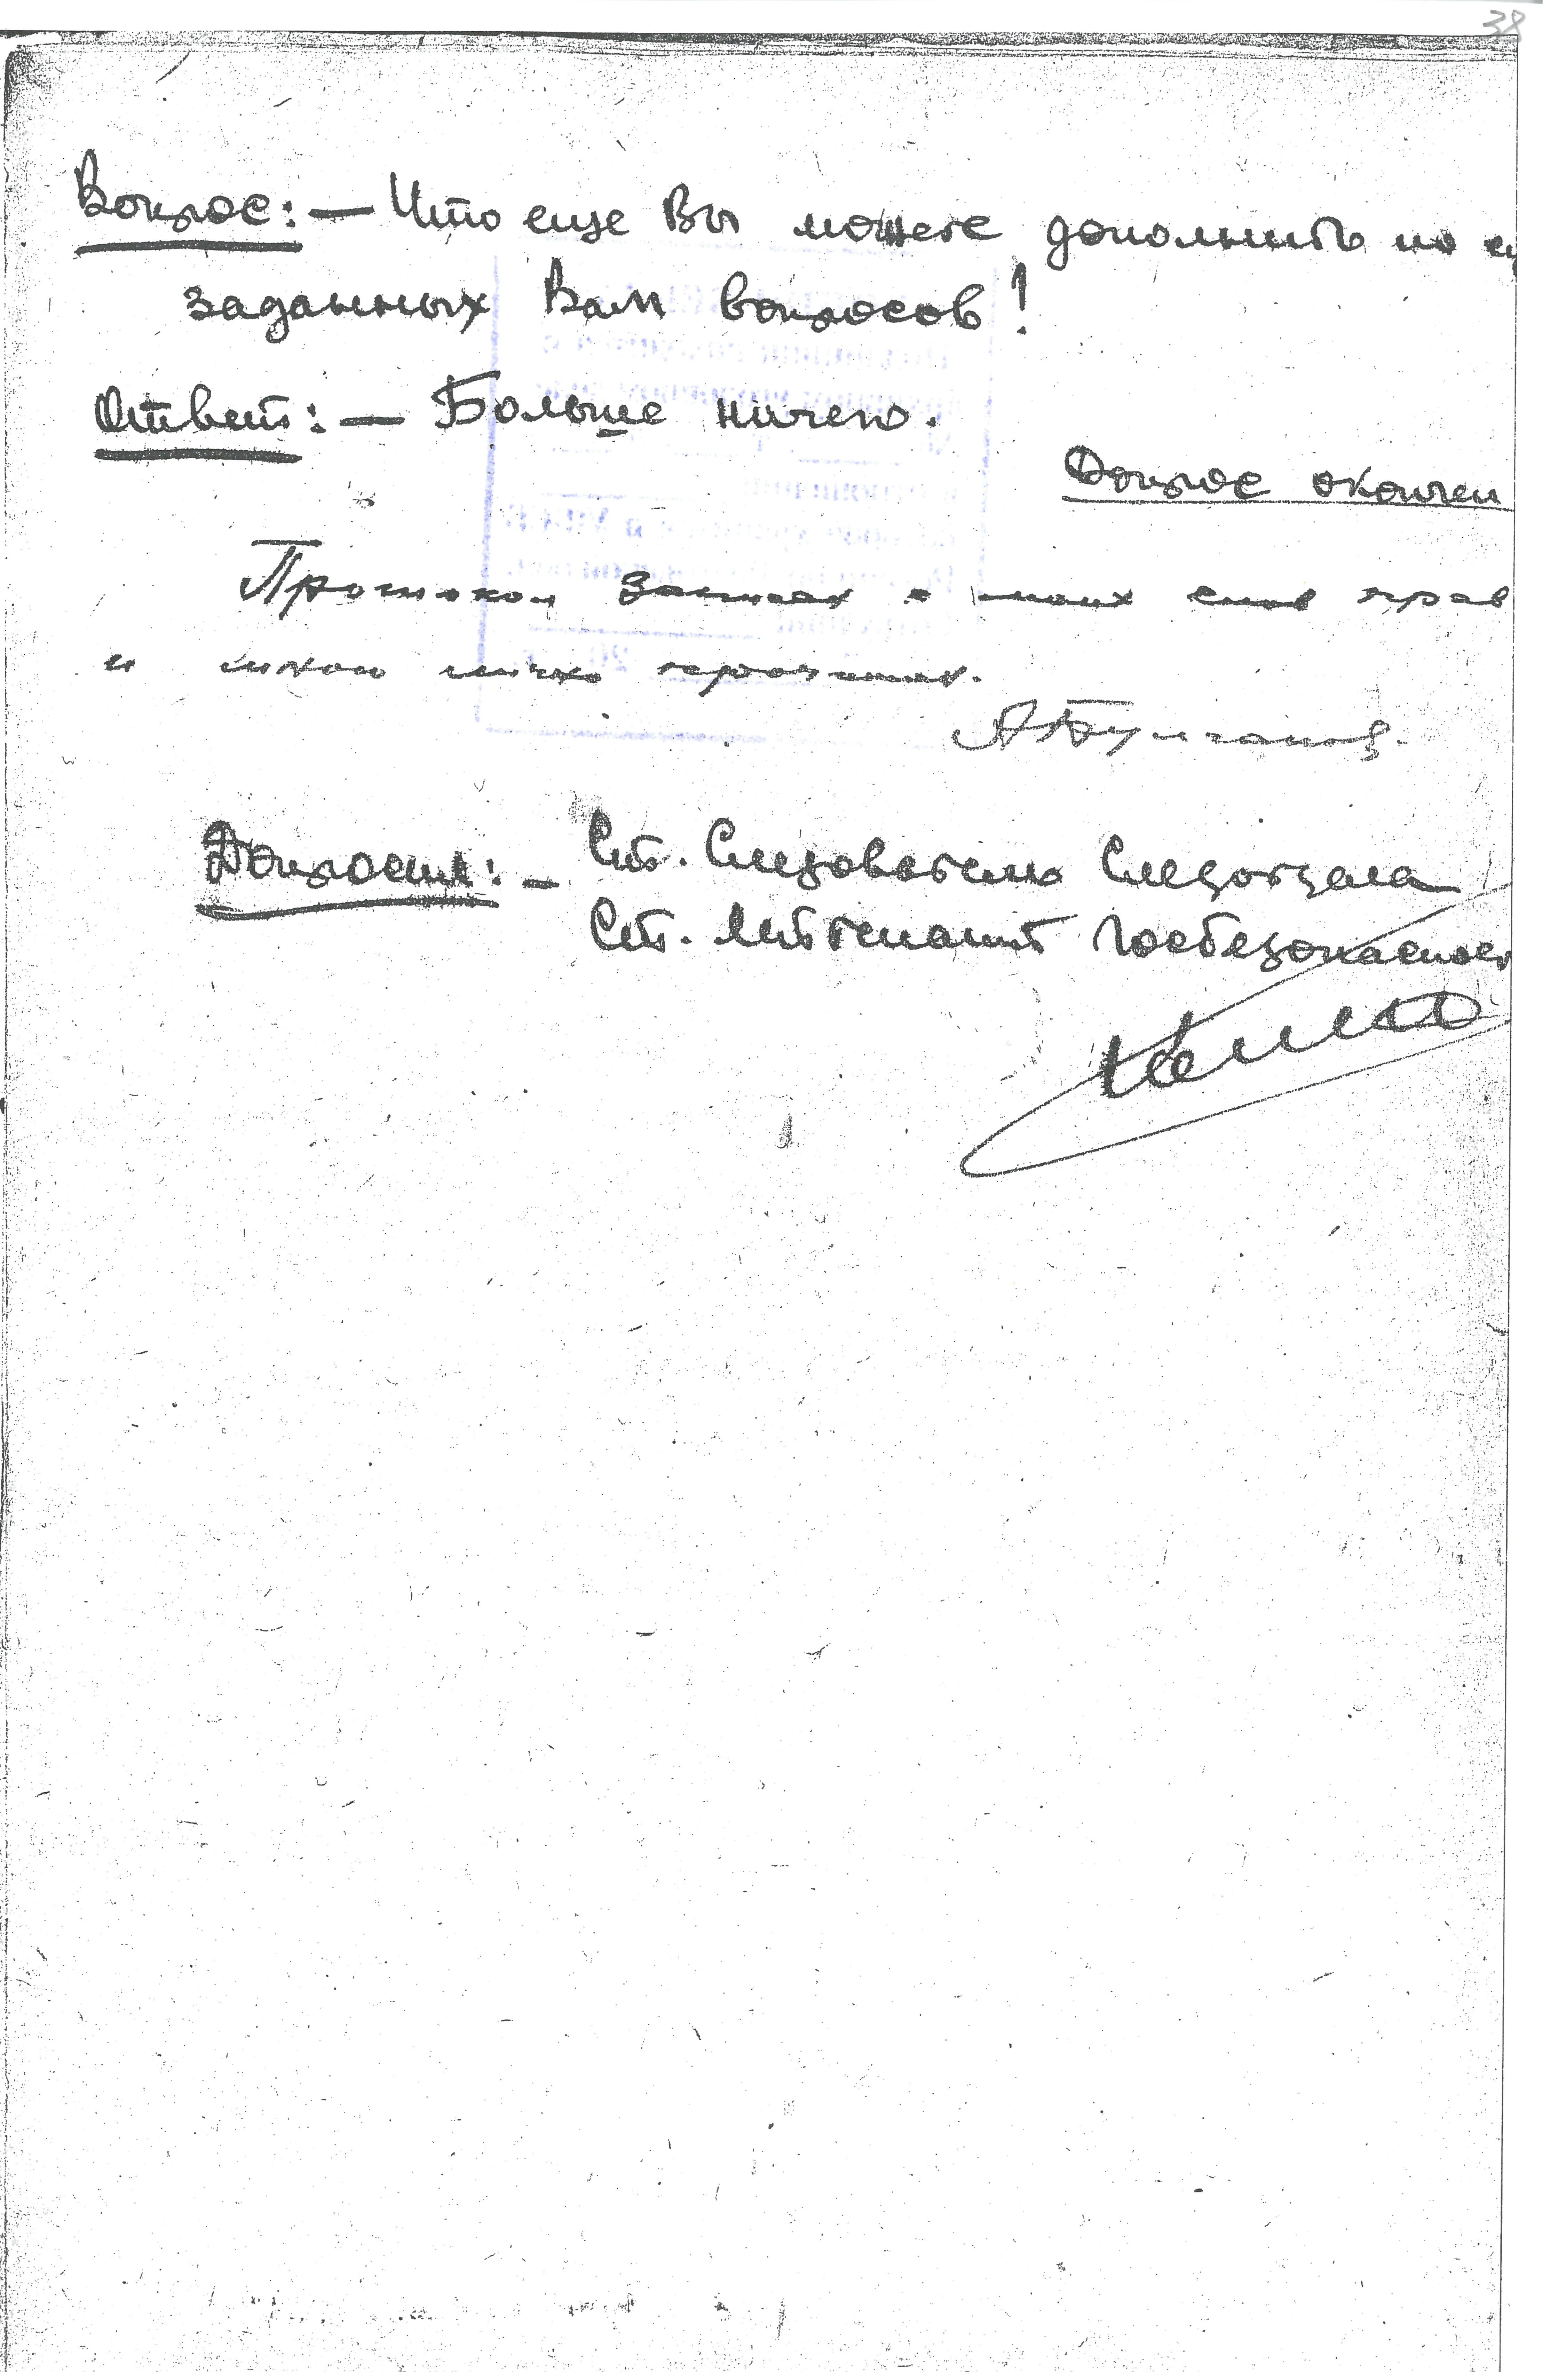 38
Вопрос: — Что еще Вы можете дополнить по с
заданных Вам вопросов!
Ответ: — Больше ничего.
Допрос окончен
Протокол записан с моих слов прав
и мною лично прочитан.
А Булганов.
Допросил: — Ст. Следователь Следотдела
Ст. Лейтенант Госбезопасност